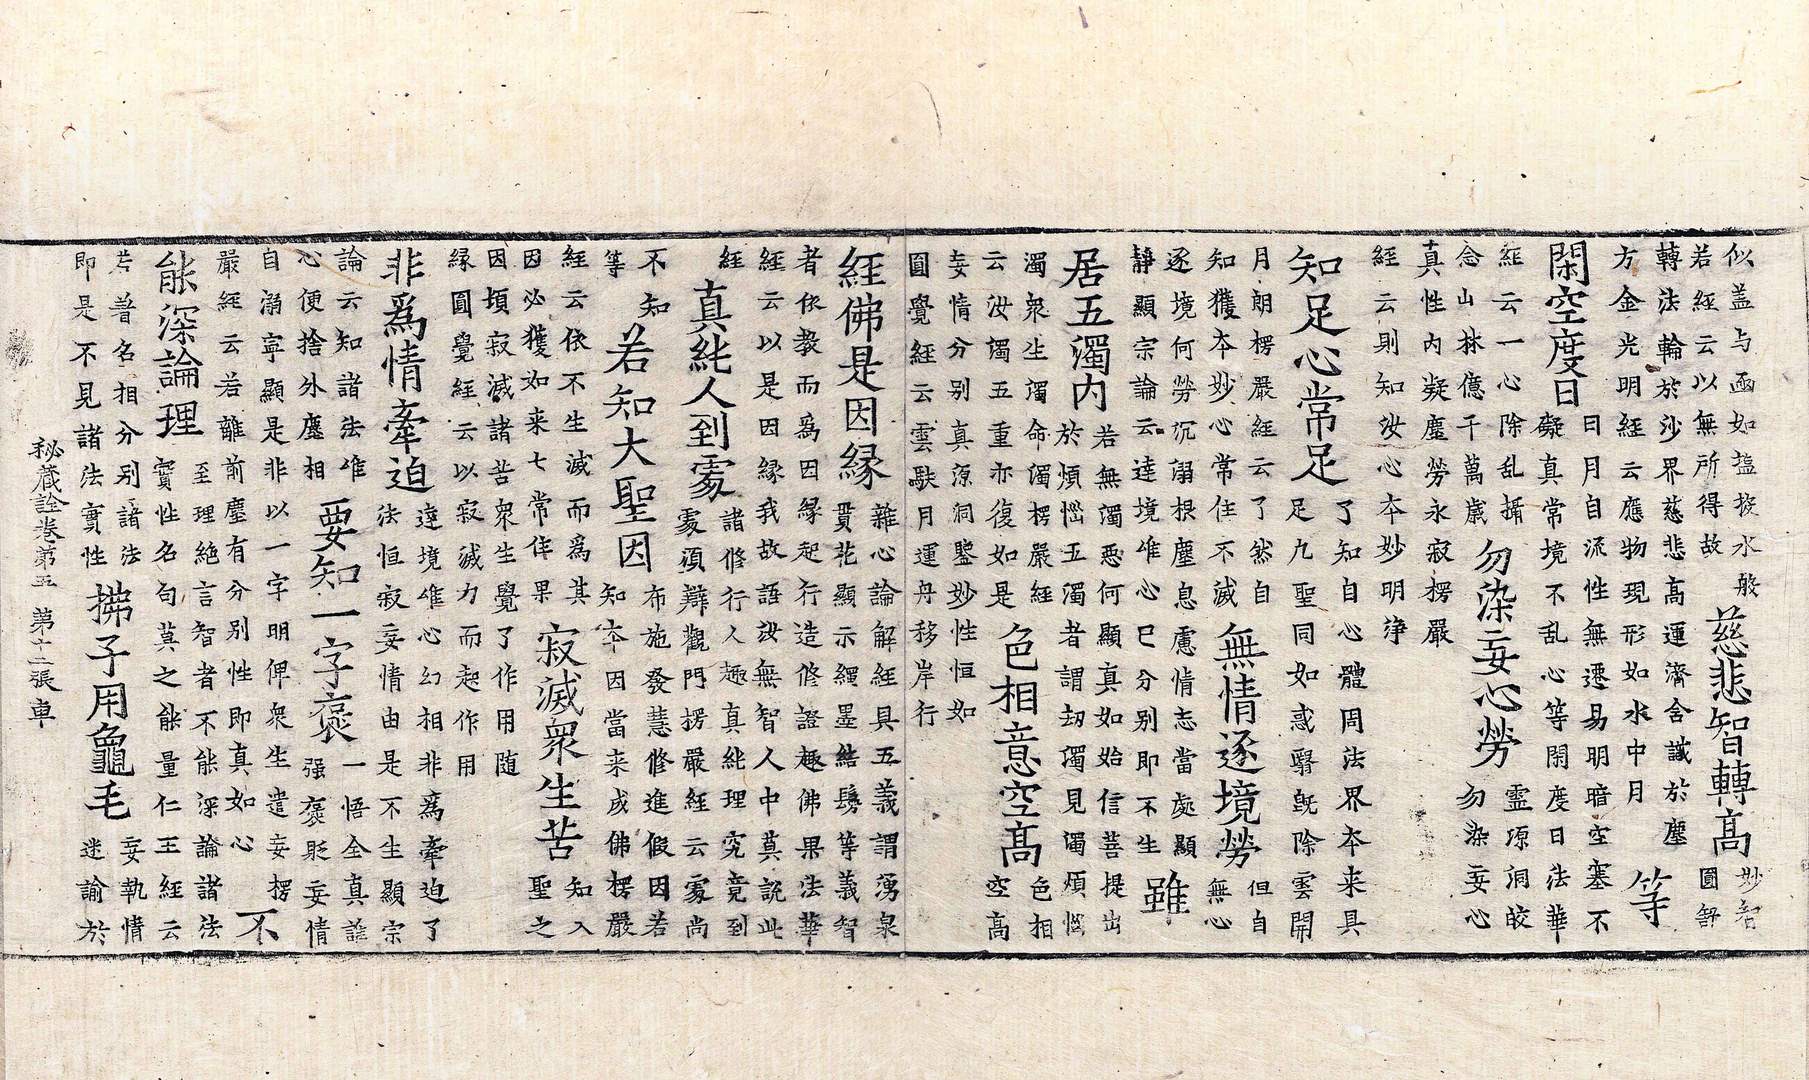 似盖与函如榼投水般
若經云以無所得故
慈悲智轉高
妙智
圓舒
轉法輪於沙界慈悲高運濟含識於塵
方金光明經云應物現形如水中月
等
閑空度日
日月自流性無遷易明暗空塞不
礙真常境不乱心等閑度日法華
經云一心除乱攝
念山林億千萬歲
勿染妄心勞
靈源洞皎
勿染妄心
真性內凝塵勞永寂楞嚴
經云則知汝心本妙明淨
知足心常足
了知自心體周法界本来具
足九聖同如惑翳旣除雲開
月朗楞嚴經云了然自
知獲本妙心常住不滅
無情逐境勞
但自
無心
逐境何勞沉溺根塵息慮情志當處顯
静顯宗論云達境唯心已分別即不生
雖
居五濁內
若無濁惡何顯真如始信菩提出
於煩惱五濁者謂劫濁見濁煩惱
濁衆生濁命濁楞嚴經
云汝濁五重亦復如是
色相意空高
色相
空高
妄情分别真源洞鑒妙性恒如
圓覺經云雲駃月運舟移岸行
經佛是因緣
雜心論解經具五義謂湧泉
貫花顯示繩墨結鬘等義智
者依教而爲因緣起行造修證趣佛果法華
經云以是因緣我故語汝無智人中莫說此
經
真純人到處
諸修行人趣真純理究竟到
處須辯觀門楞嚴經云處尚
不知
等
若知大聖因
布施發慧修進假因若
知本因當来成佛楞嚴
經云依不生滅而爲其
因必獲如来七常倖果
寂滅衆生苦
知入
聖之
因頓寂滅諸苦衆生覺了作用随
緣圓覺經云以寂滅力而起作用
非爲情牽迫
達境唯心幻相非爲牽迫了
法恒寂妄情由是不生顯宗
論云知諸法唯
心便捨外塵相
要知一字褒
一悟全真誰
强褒貶妄情
自溺寧顯是非以一字明俾衆生遣妄楞
嚴經云若離前塵有分别性即真如心
不
能深論理
至理絶言智者不能深論諸法
實性名句莫之能量仁王經云
若著名相分别諸法
即是不見諸法實性
拂子用龜毛
妄執情
迷諭於
秘藏詮卷第五 第十二張 車